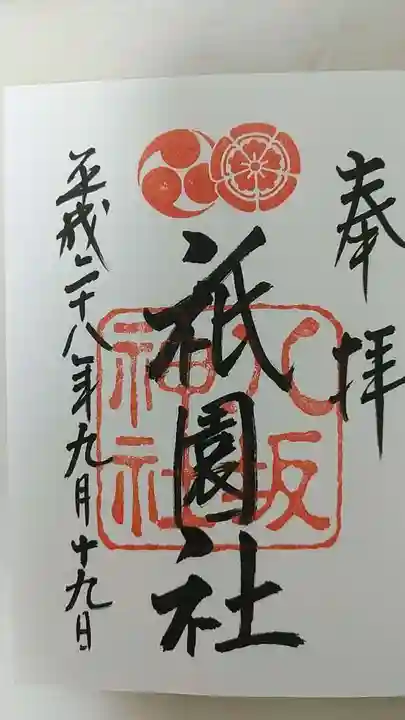 奉拝
八坂
神社
祇園社
平成二十八年九月十九日